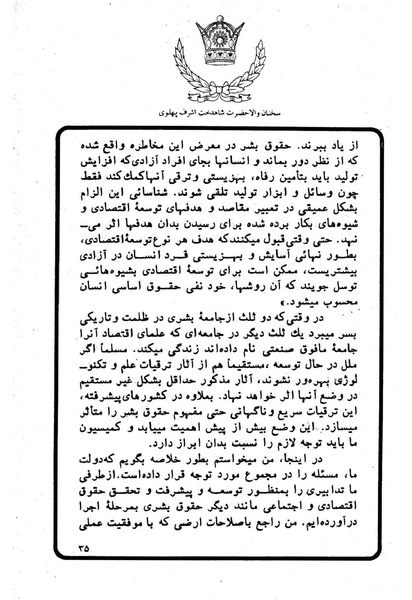 سخنان والاحضرت شاهدخت اشرف پهلوی
از یاد ببرند. حقوق بشر در معرض این مخاطره واقع شده
که از نظر دور بماند و انسانها بجای افراد آزادی‌که افزایش
تولید باید بتأمین رفاه، بهزیستی و ترقی آنهاکمک‌کند فقط
چون وسائل و ابزار تولید تلقی شوند. شناسائی این الزام
بشکل عمیقی در تعبیر مقاصد و هدفهای توسعهٔ اقتصادی و
شیوه‌های بکار برده شده برای رسیدن بدان هدفها اثر می‌ـ
نهد. حتی وقتی‌قبول میکنندکه هدف هر نوع‌توسعهٔ‌اقتصادی،
بطور نهائی آسایش و بهزیستی فرد انسان در آزادی
بیشتریست، ممکن است برای توسعهٔ اقتصادی بشیوه‌هائی
توسل جویند که آن روشها، خود نفی حقوق اساسی انسان
محسوب میشود.»
در وقتی‌که دو ثلث ازجامعهٔ بشری در ظلمت وتاریکی
بسر میبرد یك ثلث دیگر در جامعه‌ای که علمای اقتصاد آنرا
جامعهٔ مافوق صنعتی نام داده‌اند زندگی میکند. مسلماً اگر
ملل در حال توسعه ، مستقیماً هم از آثار ترقیات علم و تکنوـ
لوژی بهره‌ور نشوند، آثار مذکور حداقل بشکل غیر مستقیم
در وضع آنها اثر خواهد نهاد. بعلاوه در کشورهای‌پیشرفته،
این ترقیات سریع وناگهانی حتی مفهوم حقوق بشر را متأثر
میسازد. این وضع بیش از پیش اهمیت مییابد و کمیسیون
ما باید توجه لازم را نسبت بدان ابراز دارد.
در اینجا، من میخواستم بطور خلاصه بگویم که‌دولت
ما، مسئله را در مجموع مورد توجه قرار داده‌است.ازطرفی
ما تدابیری را بمنظور توسعه و پیشرفت و تحقق حقوق
اقتصادی و اجتماعی مانند دیگر حقوق بشری بمرحلهٔ اجرا
درآورده‌ایم. من راجع باصلاحات ارضی که با موفقیت عملی
۳۵